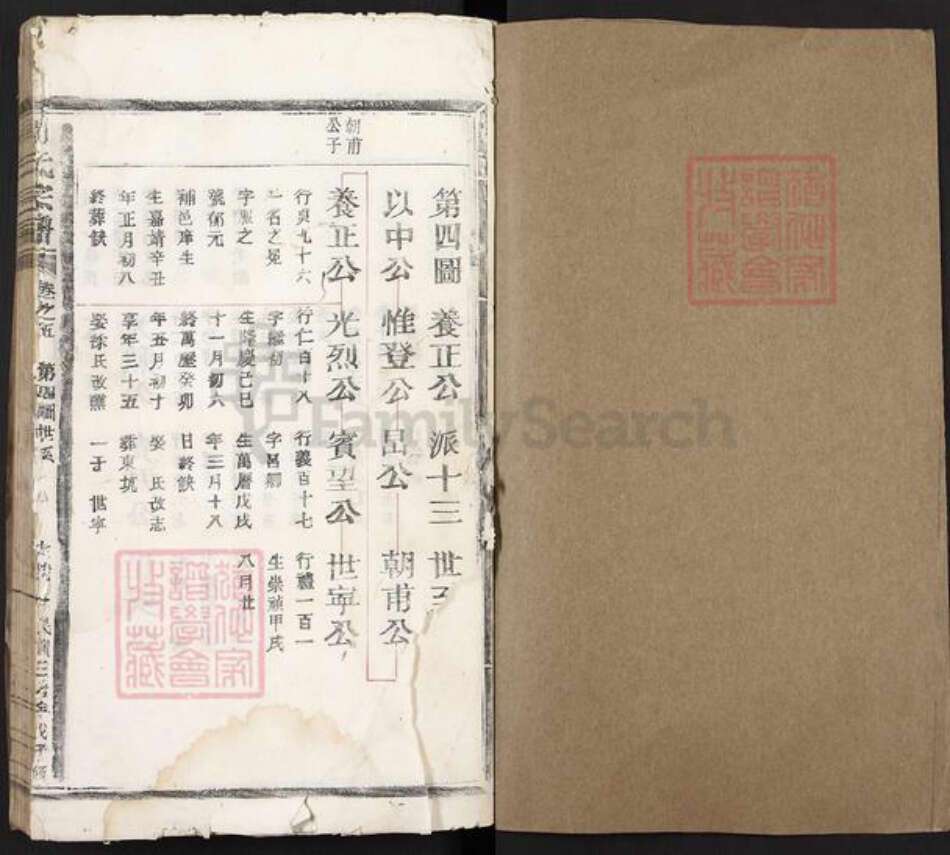 第四圖 養正公 派十三 世
以中公 惟登公 邑公 朝甫公
朝甫
公子
養正公 光烈公 賓望公 世寧公
行貞九十六
一名之冕
字服之
號郁元
補邑庠生
生嘉靖辛丑
年正月初八
終葬缺
行仁百十八
生隆慶己巳
十一月初六
終萬歷癸卯
年五月初十
享年三十五
娶徐氏改醮
行義百十七
字呂卿
生萬曆戊戌
年三月十八
日終缺
娶 氏改志
葬東坑
一子 世寧
行禮一百一
生崇禎甲戌
八月廿
氏宗譜
卷之五
第四圖世系
FamilySearch
譜學會
收藏
譜學會
收藏